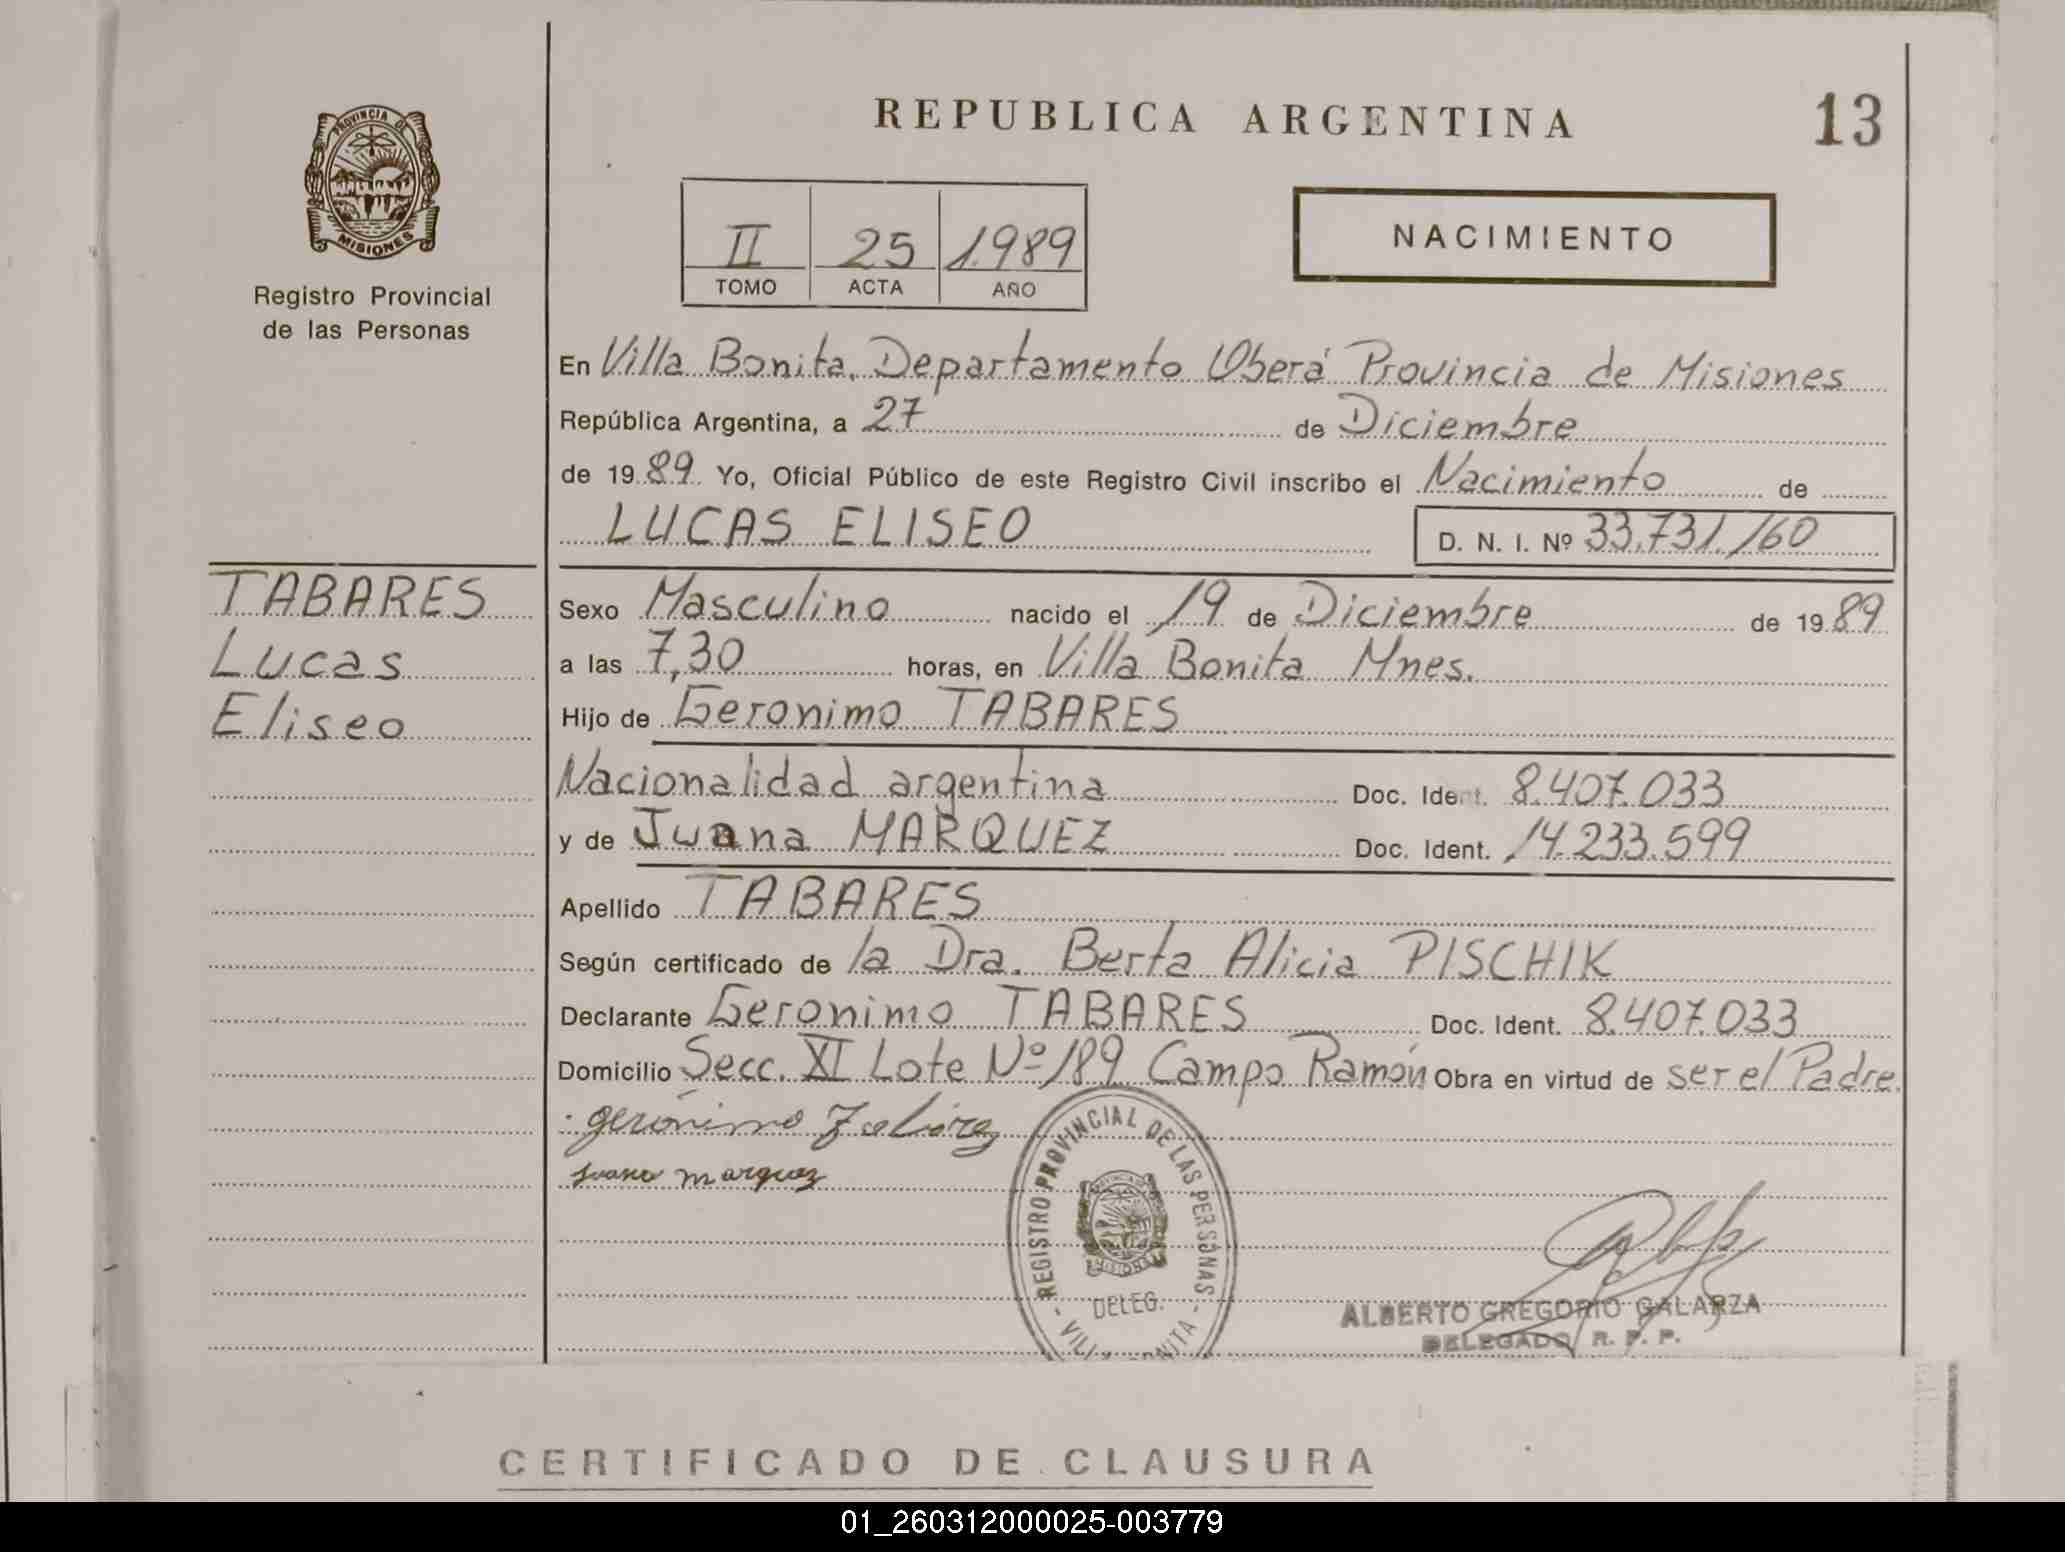 REPUBLICA ARGENTINA
13
PROVINCIA DE
MISIONES
Registro Provincial
de las Personas
II 25 1989
TOMO ACTA AÑO
NACIMIENTO
En Villa Bonita, Departamento Oberá Provincia de Misiones
República Argentina, a 27 de Diciembre
de 1989 Yo, Oficial Público de este Registro Civil inscribo el Nacimiento de
LUCAS ELISEO D. N. I. Nº 33.731.160
TABARES
Lucas
Eliseo
Sexo Masculino nacido el 19 de Diciembre de 1989
a las 7,30 horas, en Villa Bonita Mnes.
Hijo de Geronimo TABARES
Nacionalidad argentina Doc. Ident. 8.407.033
y de Juana MARQUEZ Doc. Ident. 14.233.599
Apellido TABARES
Según certificado de la Dra. Berta Alicia PISCHIK
Declarante Geronimo TABARES Doc. Ident. 8.407.033
Domicilio Secc. XI Lote Nº 189 Campo Ramón Obra en virtud de ser el Padre.
geronimo Tabarez
Juana marquez
REGISTRO PROVINCIAL DE LAS PERSONAS
MISIONES
DELEG.
ALBERTO GREGORIO GALARZA
DELEGADO R. P. P.
CERTIFICADO DE CLAUSURA
01_260312000025-003779